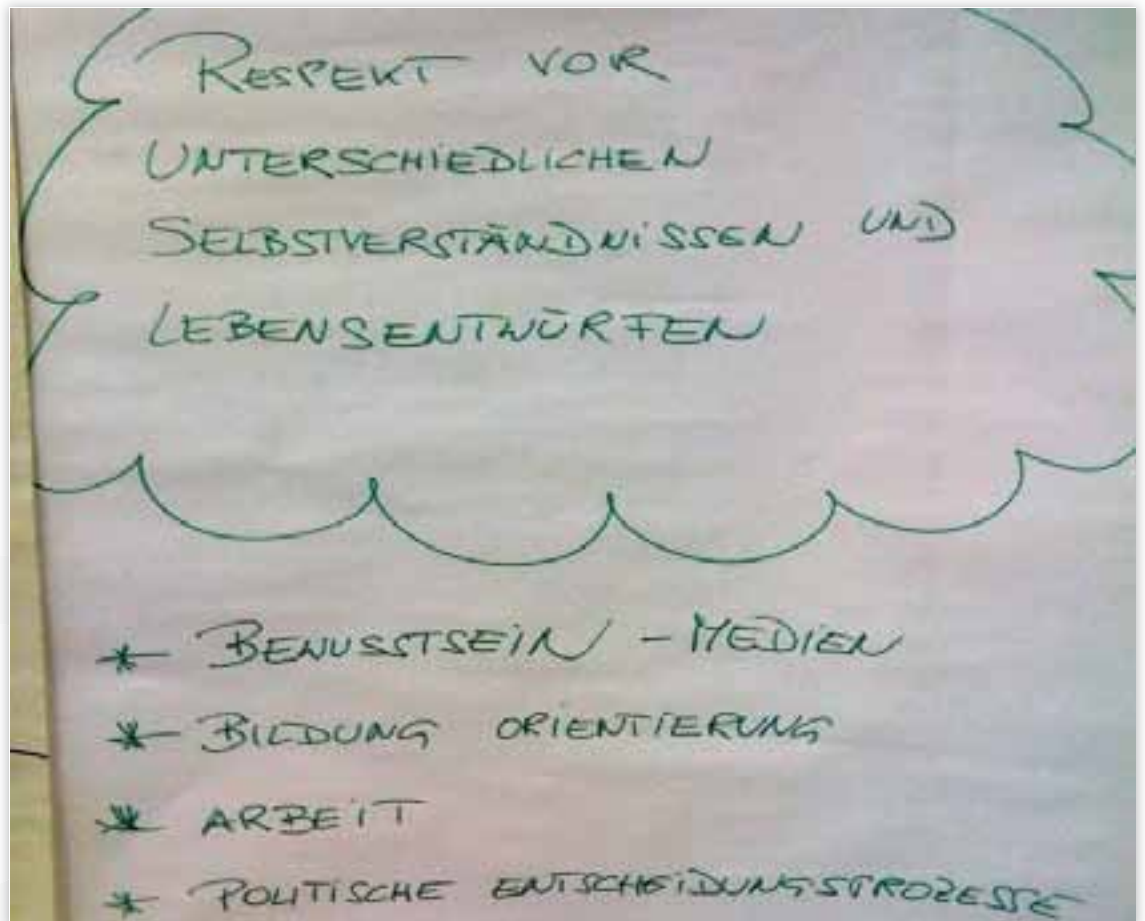 RESPEKT VOR
UNTERSCHIEDLICHEN
SELBSTVERSTÄNDNISSEN UND
LEBENSENTWÜRFEN
* BEWUSSTSEIN - MEDIEN
* BILDUNG ORIENTIERUNG
* ARBEIT
* POLITISCHE ENTSCHEIDUNGSPROZESSE